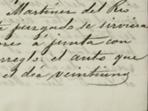 Martinez del Rio
juzgado se sirviera
a junta con
arregle el auto que
el dia veintiuno